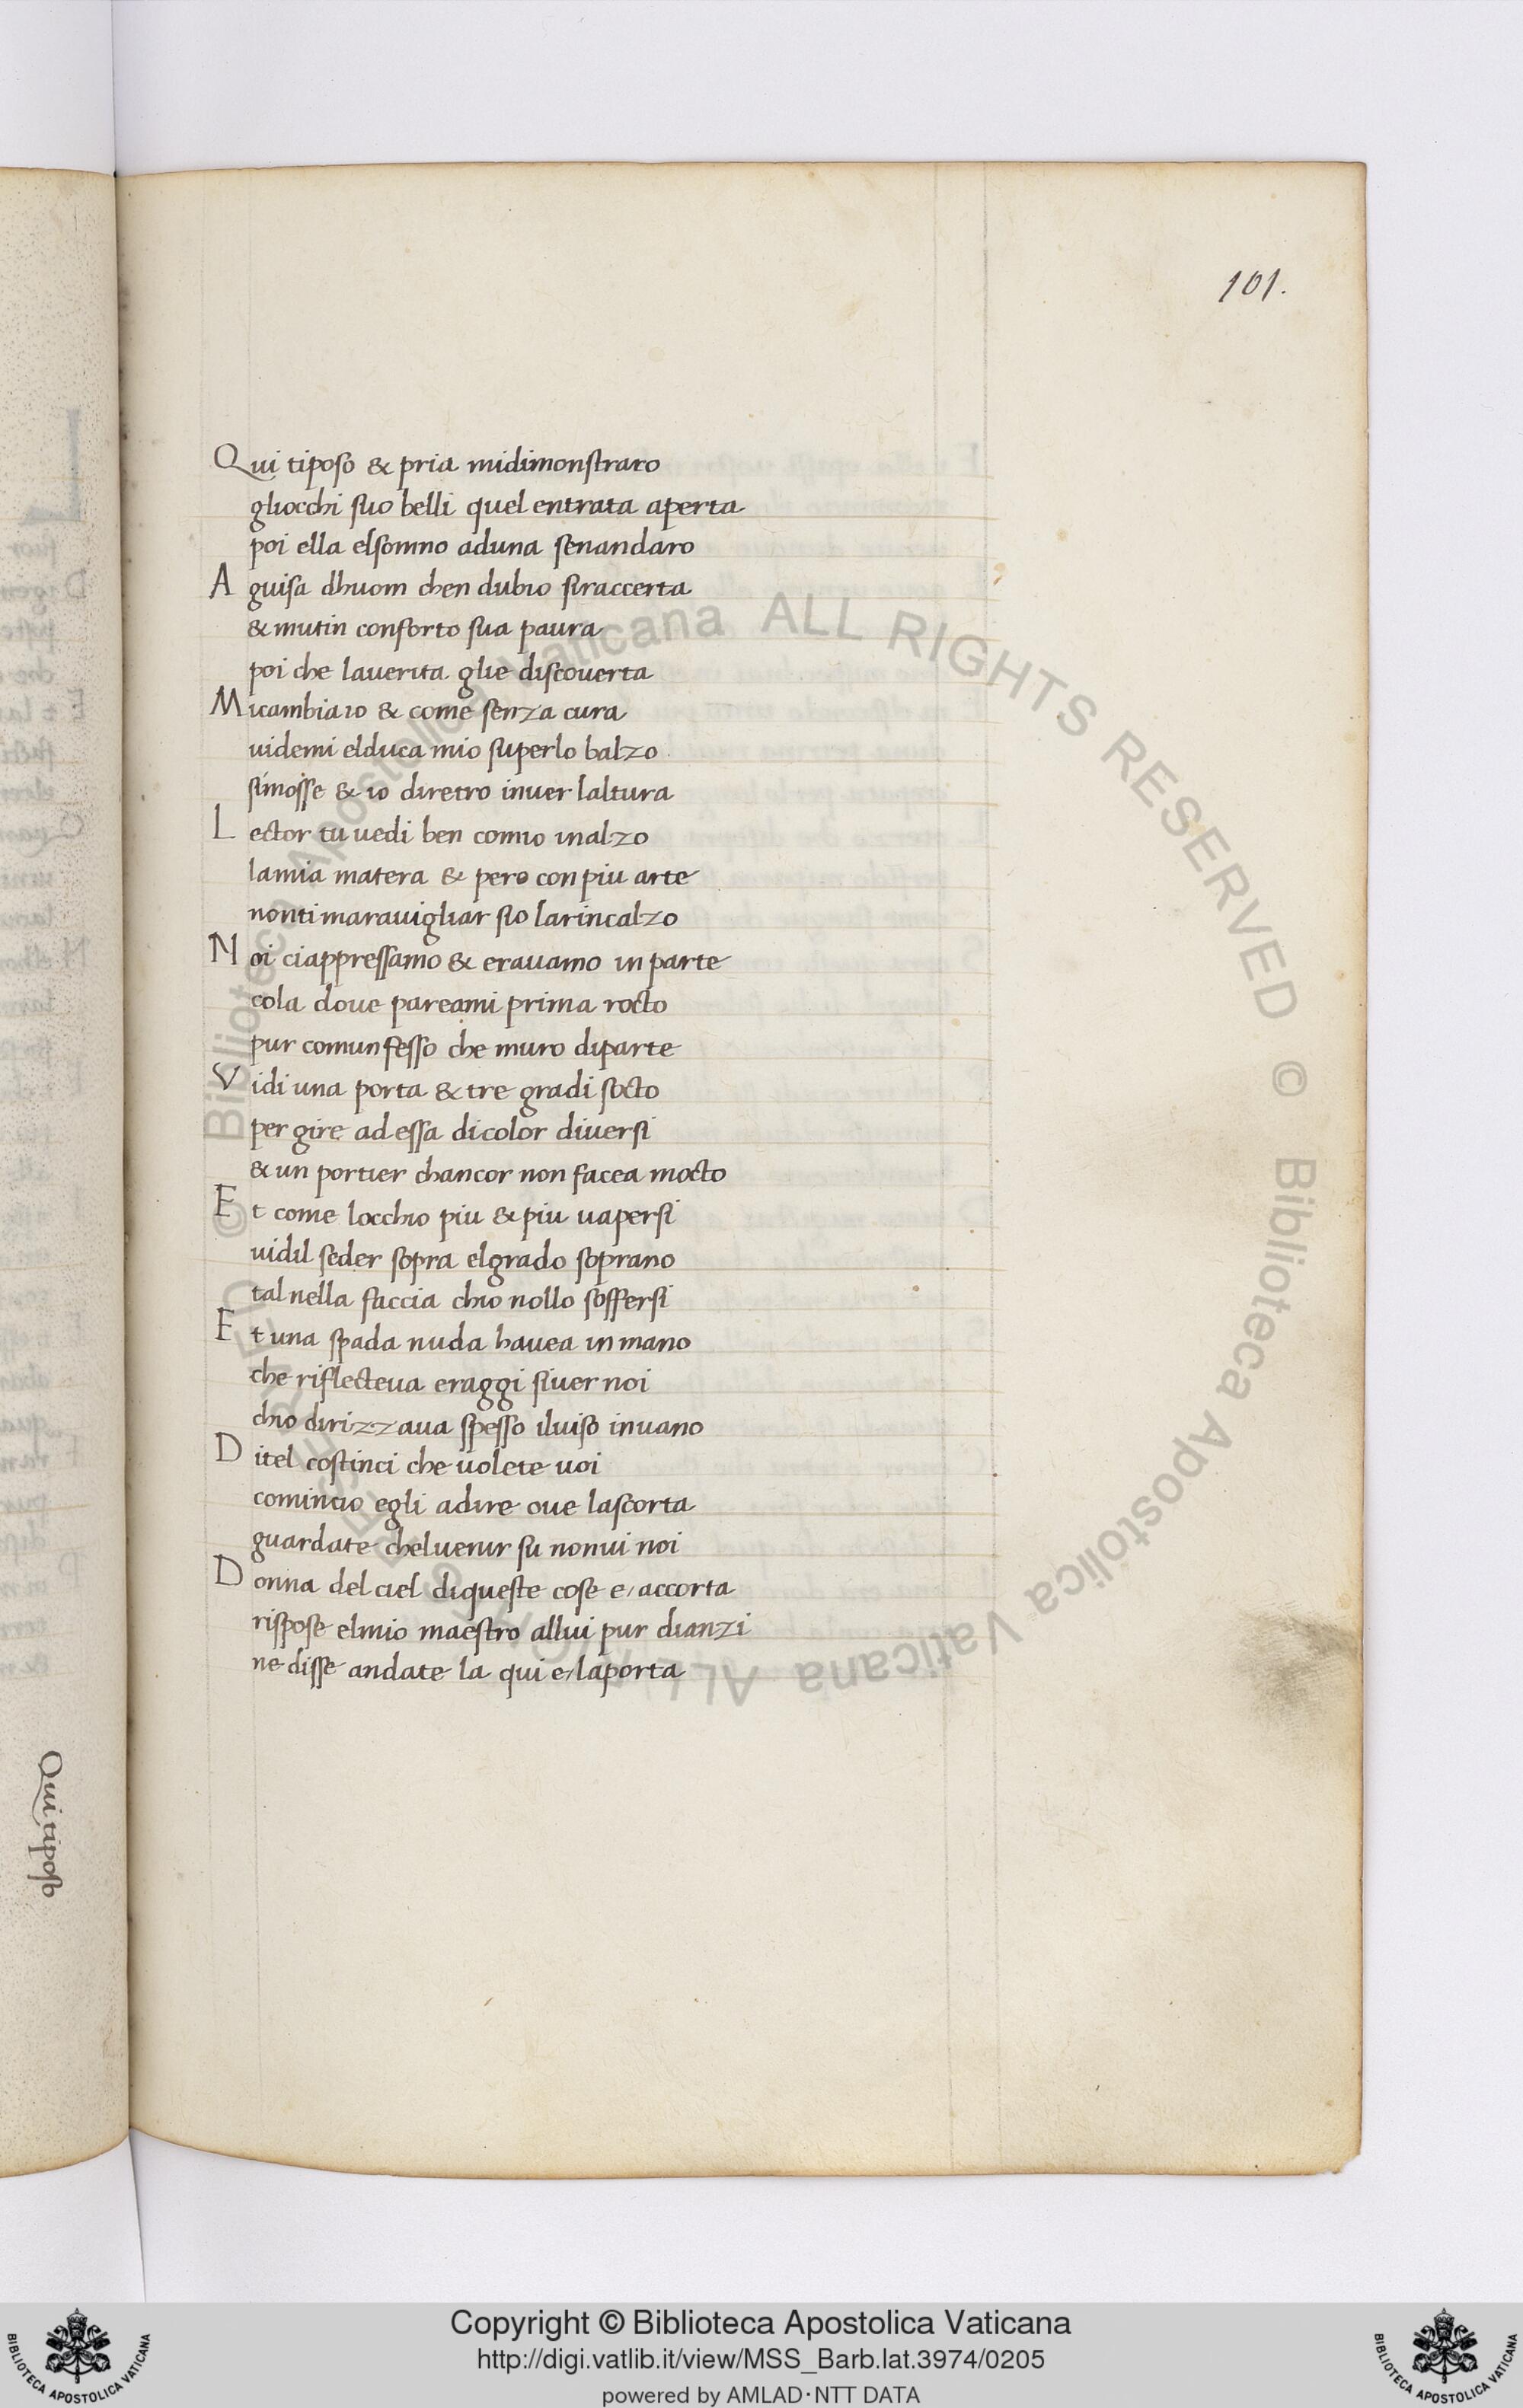 101.
Qui tiposo & pria midimonstraro
gliocchi suo belli quel entrata aperta
poi ella elsomno aduna senandaro
A guisa dhuom chen dubio siraccerta
& mutin conforto sua paura
poi che lauerita glie discouerta
Micambia io & come senza cura
uidemi elduca mio superlo balzo
simosse & io diretro inuer laltura
Lector tu uedi ben comio inalzo
lamia matera & pero con piu arte
nonti marauigliar sio larincalzo
Noi ciappressamo & erauamo in parte
cola doue pareami prima rocto
pur comun fesso che muro diparte
Vidi una porta & tre gradi socto
per gire ad essa dicolor diuersi
& un portier chancor non facea mocto
Et come locchio piu & piu uapersi
uidil seder sopra elgrado soprano
tal nella faccia chio nollo soffersi
Et una spada nuda hauea in mano
che riflecteua eraggi siuer noi
chio dirizzaua spesso iluiso inuano
Ditel costinci che uolete uoi
comincio egli adire oue lascorta
guardate cheluenir su nonui noi
Donna del ciel diqueste cose e/ accorta
rispose elmio maestro allui pur dianzi
ne disse andate la qui e/ laporta
Qui tiposo
© Biblioteca Apostolica Vaticana ALL RIGHTS RESERVED © Biblioteca Apostolica Vaticana ALL RIGHTS RESERVED
Copyright © Biblioteca Apostolica Vaticana
http://digi.vatlib.it/view/MSS_Barb.lat.3974/0205
powered by AMLAD·NTT DATA
BIBLIOTECA APOSTOLICA VATICANA
BIBLIOTECA APOSTOLICA VATICANA